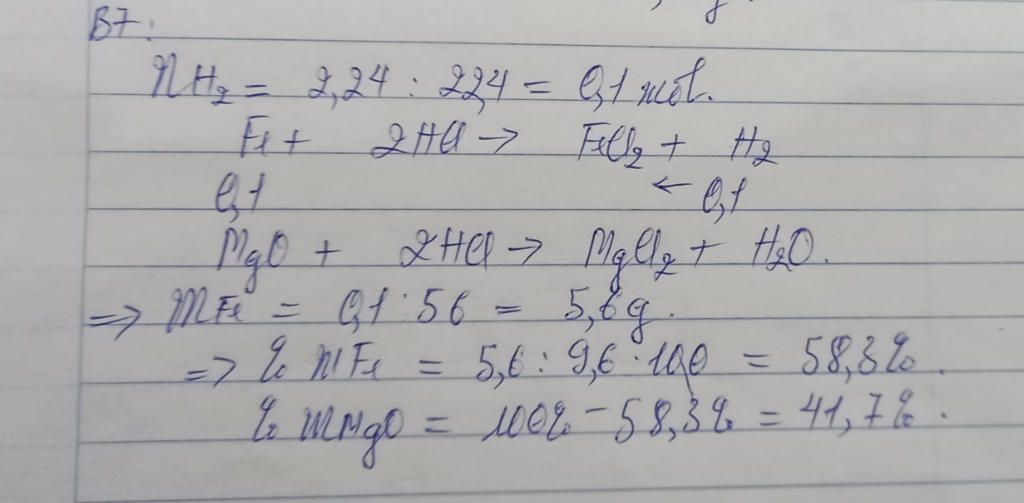 B7:
nH₂ = 2,24 : 22,4 = 0,1 mol.
Fe + 2HCl → FeCl₂ + H₂
0,1 ← 0,1
MgO + 2HCl → MgCl₂ + H₂O.
=> mFe = 0,1 · 56 = 5,6g.
=> % mFe = 5,6 : 9,6 · 100 = 58,3%.
% mMgO = 100% - 58,3% = 41,7%.